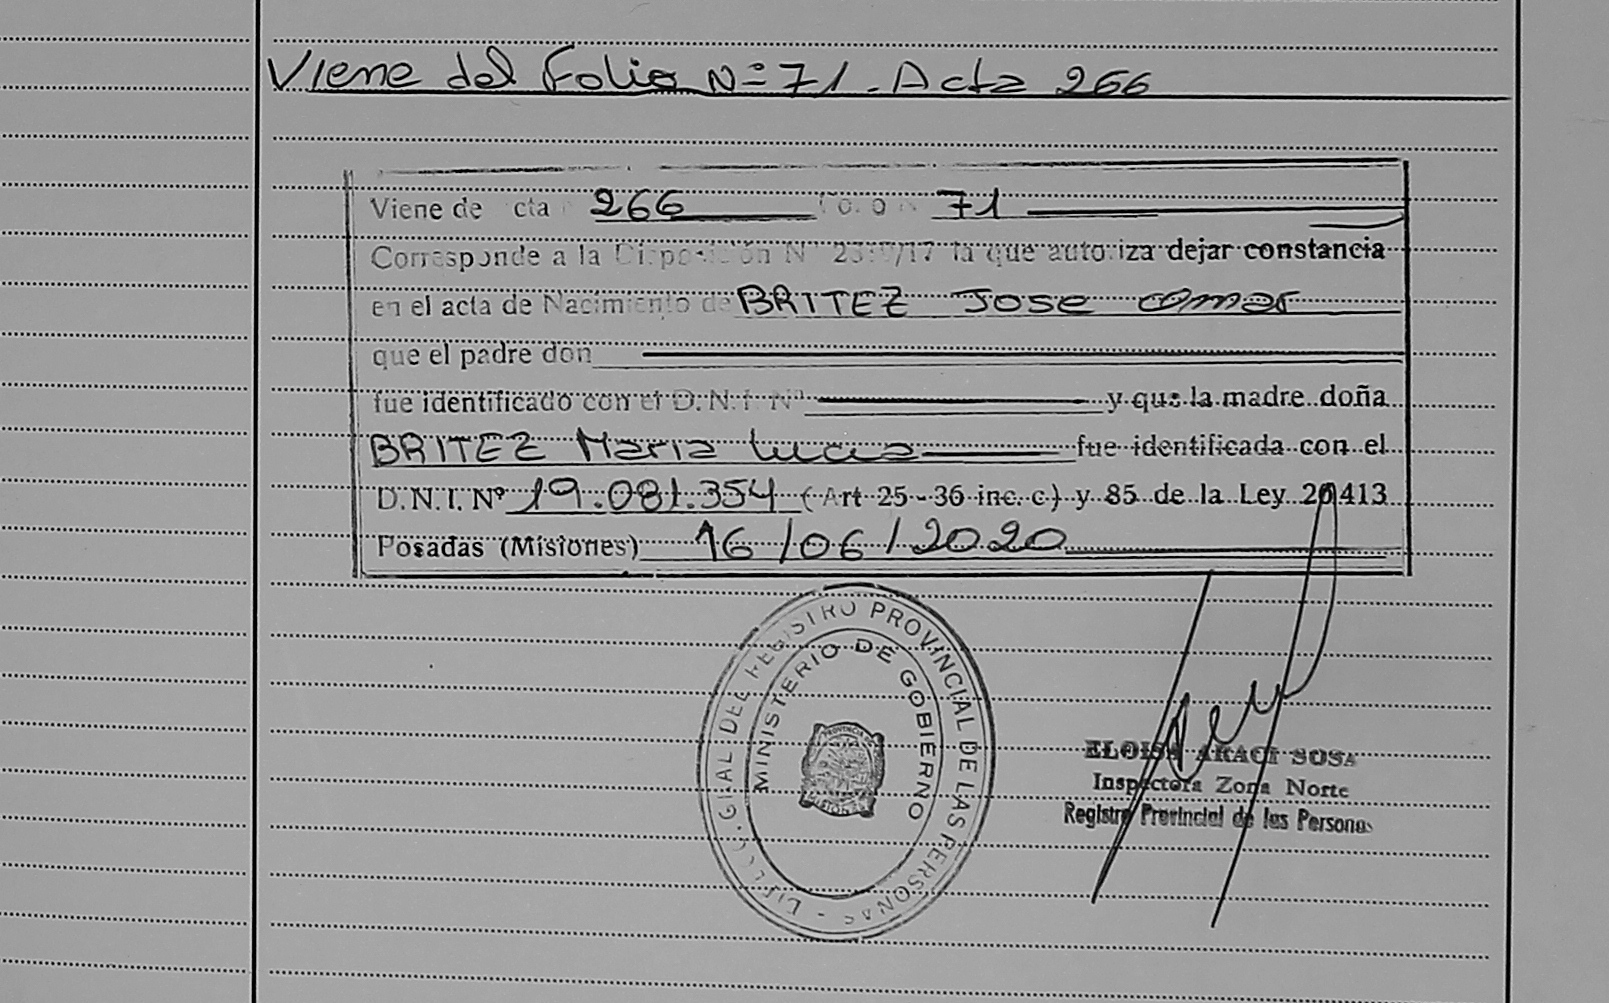 Viene del Folio Nº 71. Acta 266
Viene de cta 266 71
Corresponde a la Disposición Nº /17 la que autoriza dejar constancia
en el acta de Nacimiento de BRITEZ JOSE OMAR
que el padre don
fue identificado con el D.N.I. Nº y que la madre doña
BRITEZ Maria Lucia fue identificada con el
D.N.I. Nº 19.081.354 (Art 25-36 inc. c) y 85 de la Ley 26413
Posadas (Misiones) 16/06/2020
GRAL DEL REGISTRO PROVINCIAL DE LAS PERSONAS
MINISTERIO DE GOBIERNO
ELOISA ARACI SOSA
Inspectora Zona Norte
Registro Provincial de las Personas